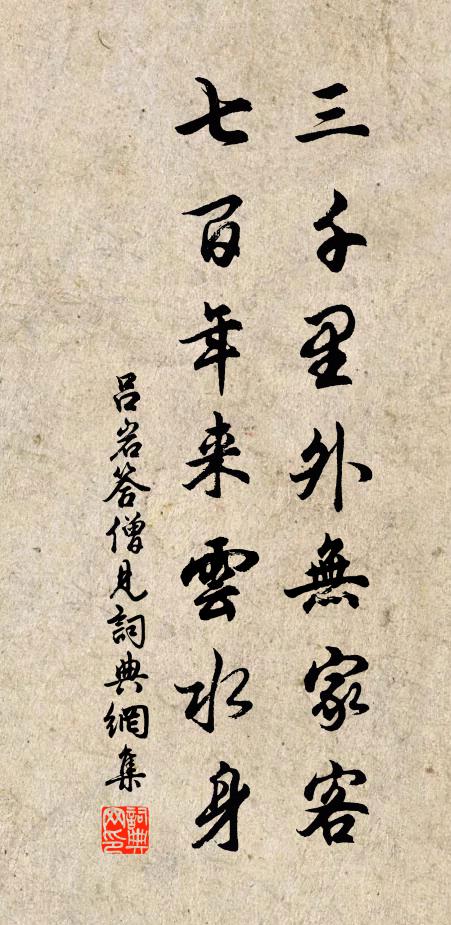 三千里外無家客
七百年来雲水身
吕岩答僧見詞典網集
詞典網印